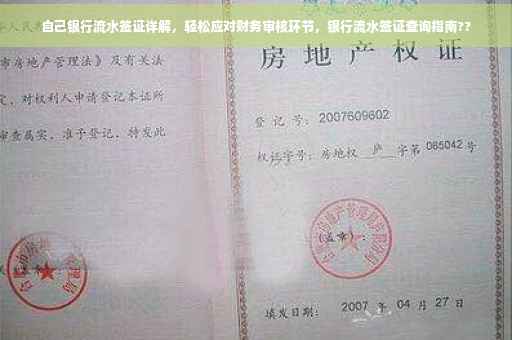 自己银行流水签证详解，轻松应对财务审核环节，银行流水签证查询指南??
市房地产管理法》及有关法
定，对权利人申请登记本证所
审查属实，准予登记，特发此
房地产权
登记号：2007609602
权证字号：房地权 庐 字第 085042 号
(盖章)：
填发日期：2007 年 04 月 27 日